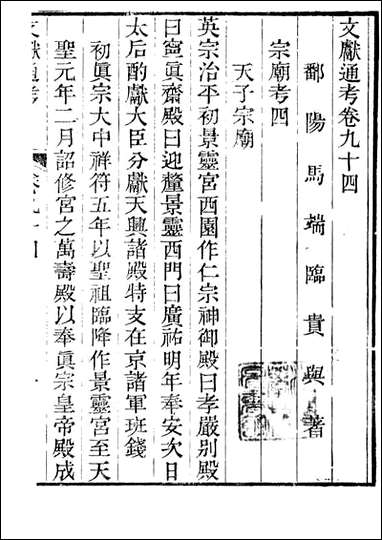 文獻通考卷九十四
鄱陽馬端臨貴與著
宗廟考四
天子宗廟
英宗治平初景靈宮西園作仁宗神御殿曰孝嚴别殿
曰寧眞齋殿曰迎釐景靈西門曰廣祐明年奉安次日
太后酌獻大臣分獻天興諸殿特支在京諸軍班錢
初眞宗大中祥符五年以聖祖臨降作景靈宮至天
聖元年二月詔修宮之萬壽殿以奉眞宗皇帝殿成